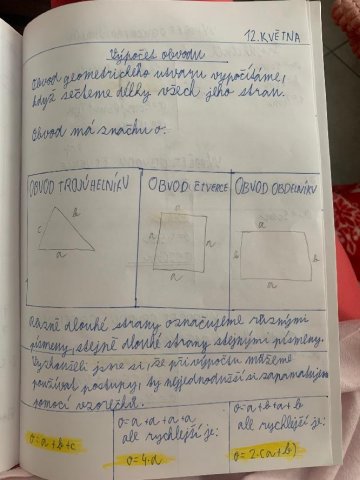 12. KVĚTNA
Výpočet obvodu
Obvod geometrického útvaru vypočítáme,
když sečteme délky všech jeho stran.
Obvod má značku o.
OBVOD TROJÚHELNÍKU
OBVOD ČTVERCE
OBVOD OBDELNÍKU
c
b
a
a
a
a
a
a
b
b
a
Různě dlouhé strany označujeme různými
písmeny, stejně dlouhé strany stejnými písmeny.
Vyzkoušeli jsme si, že při výpočtu můžeme
používat postupy, ty nejjednodušší si zapamatujeme
pomocí vzorečků.
o = a + b + c
o = a + a + a + a
ale rychlejší je:
o = 4·a
o = a + b + a + b
ale rychlejší je:
o = 2·(a + b)